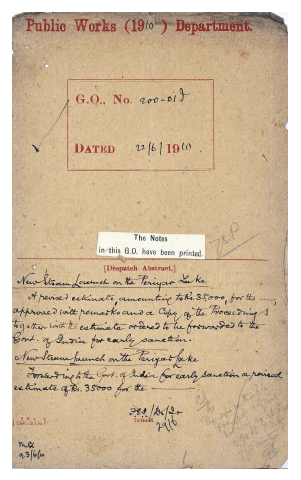 Public Works (1910) Department.
G.O., No. 200-01 I
DATED 22/6/1910
The Notes
in this G.O. have been printed.
[Despatch Abstract.]
New Steam Launch on the Periyar Lake
A revised estimate amounting to Rs. 35,000, for the —
approved with remarks and a Copy of the Proceedings
together with the estimate ordered to be forwarded to the
Govt. of India for early sanction.
New Steam Launch on the Periyar Lake
Forwarding to the Govt. of India for early sanction a revised
estimate of Rs. 35000 for the —
Indexed
29/6
23/6/10